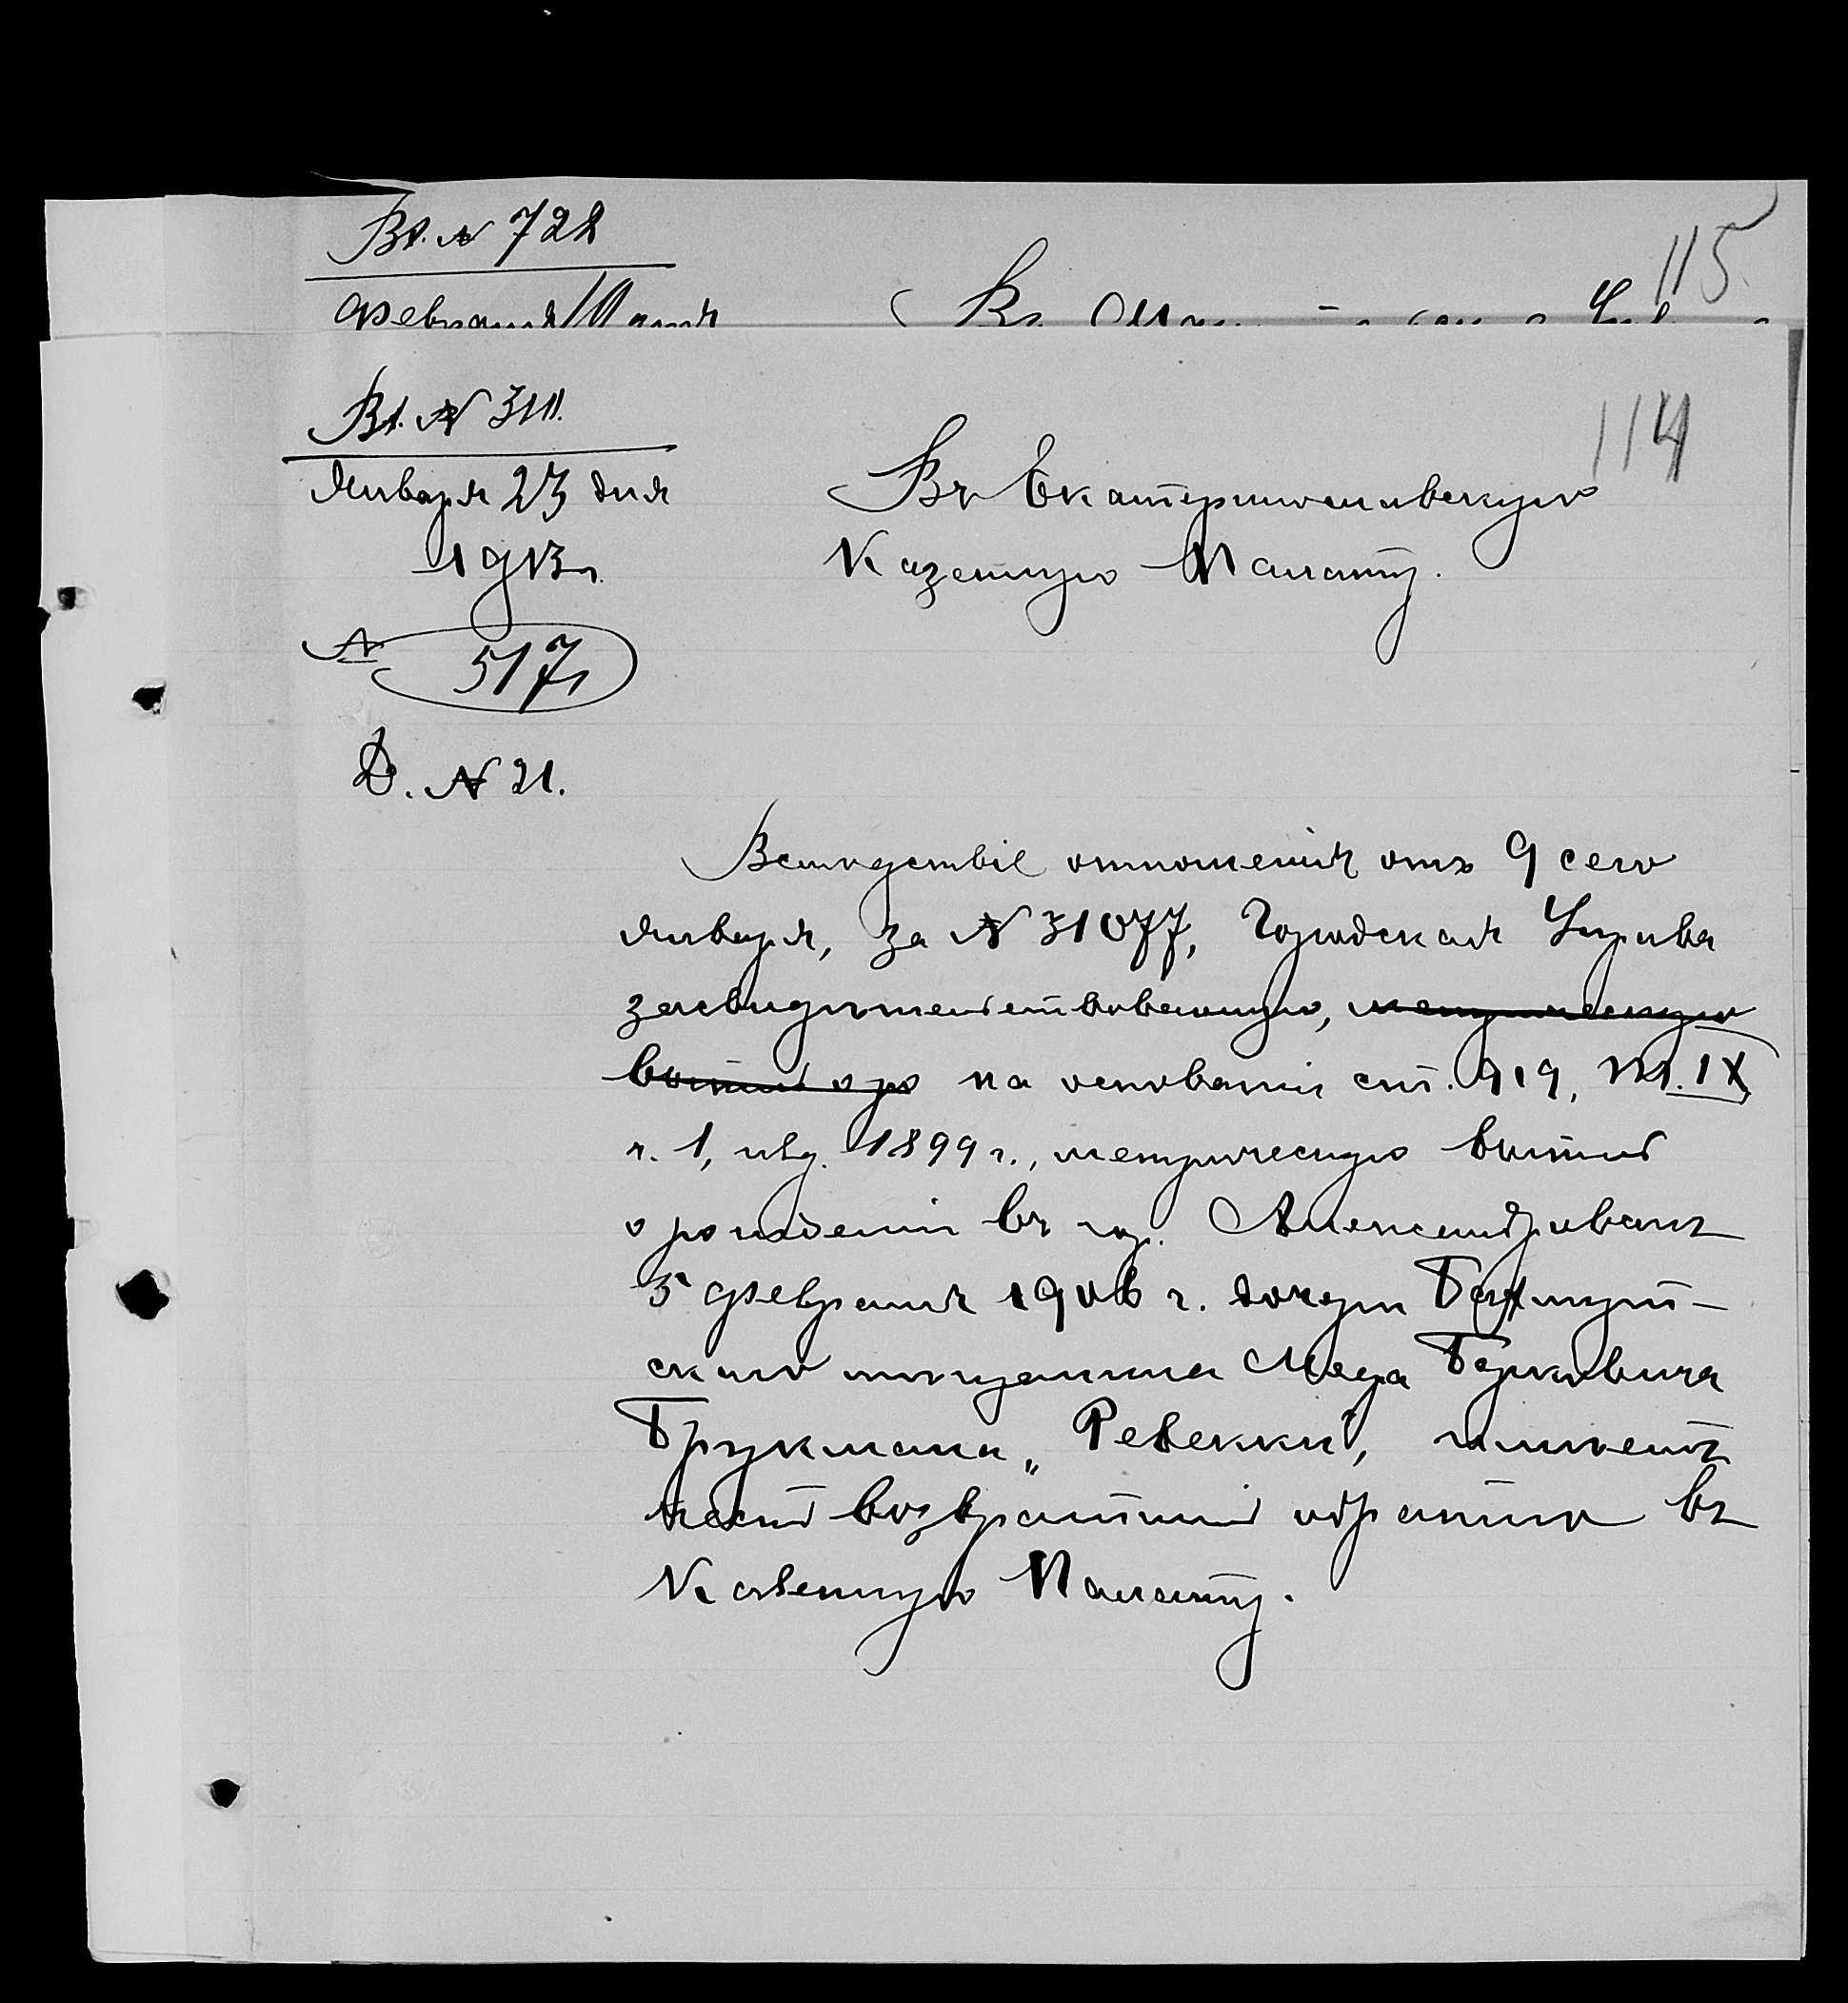 Вх. № 728
115
Февраля
Вх. № 311.
114
Января 23 дня
1913 г.
№ 517
Д. № 21.
Въ Екатеринославскую
Казенную Палату.
Вслѣдствіе отношенія отъ 9 сего
Января, за № 31077, Городская Управа
засвидѣтельствовавшую, метрическую
выпись о ро на основаніи ст. 919, т. IX
ч. 1, изд. 1899 г., метрическую выпись
о рожденіи въ гор. Александровскѣ
5 февраля 1906 г. дочери Бахмут-
скаго мѣщанина Меера Берковича
Брукмана „Ревекки", имѣетъ
честь возвратить обратно въ
Казенную Палату.